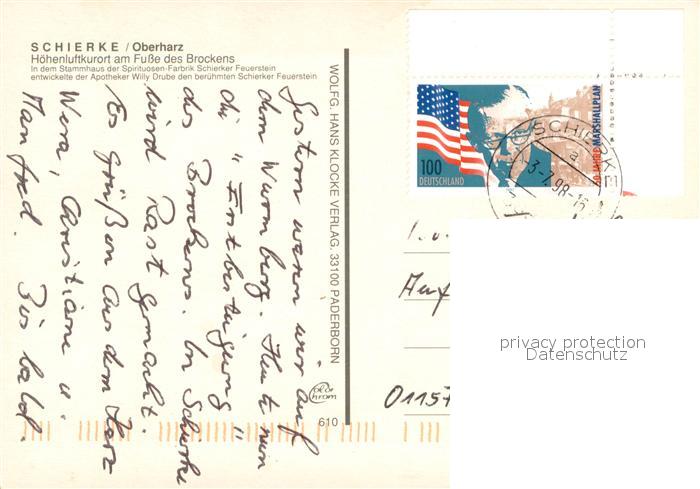 SCHIERKE / Oberharz
Höhenluftkurort am Fuße des Brockens
In dem Stammhaus der Spirituosen-Farbrik Schierker Feuerstein
entwickelte der Apotheker Willy Drube den berühmten Schierker Feuerstein
Gestern waren wir auf
dem Wurmberg. Heute nun
die "Erstbesteigung"
des Brockens. In Schierke
wird Rast gemacht.
Es grüßen aus dem Harz
Wera, Christiane u.
Manfred. Bis bald.
WOLFG. HANS KLOCKE VERLAG, 33100 PADERBORN
610
100
DEUTSCHLAND
50 JAHRE MARSHALLPLAN
SCHIERKE
a
3-7.98-16
01157
privacy protection
Datenschutz